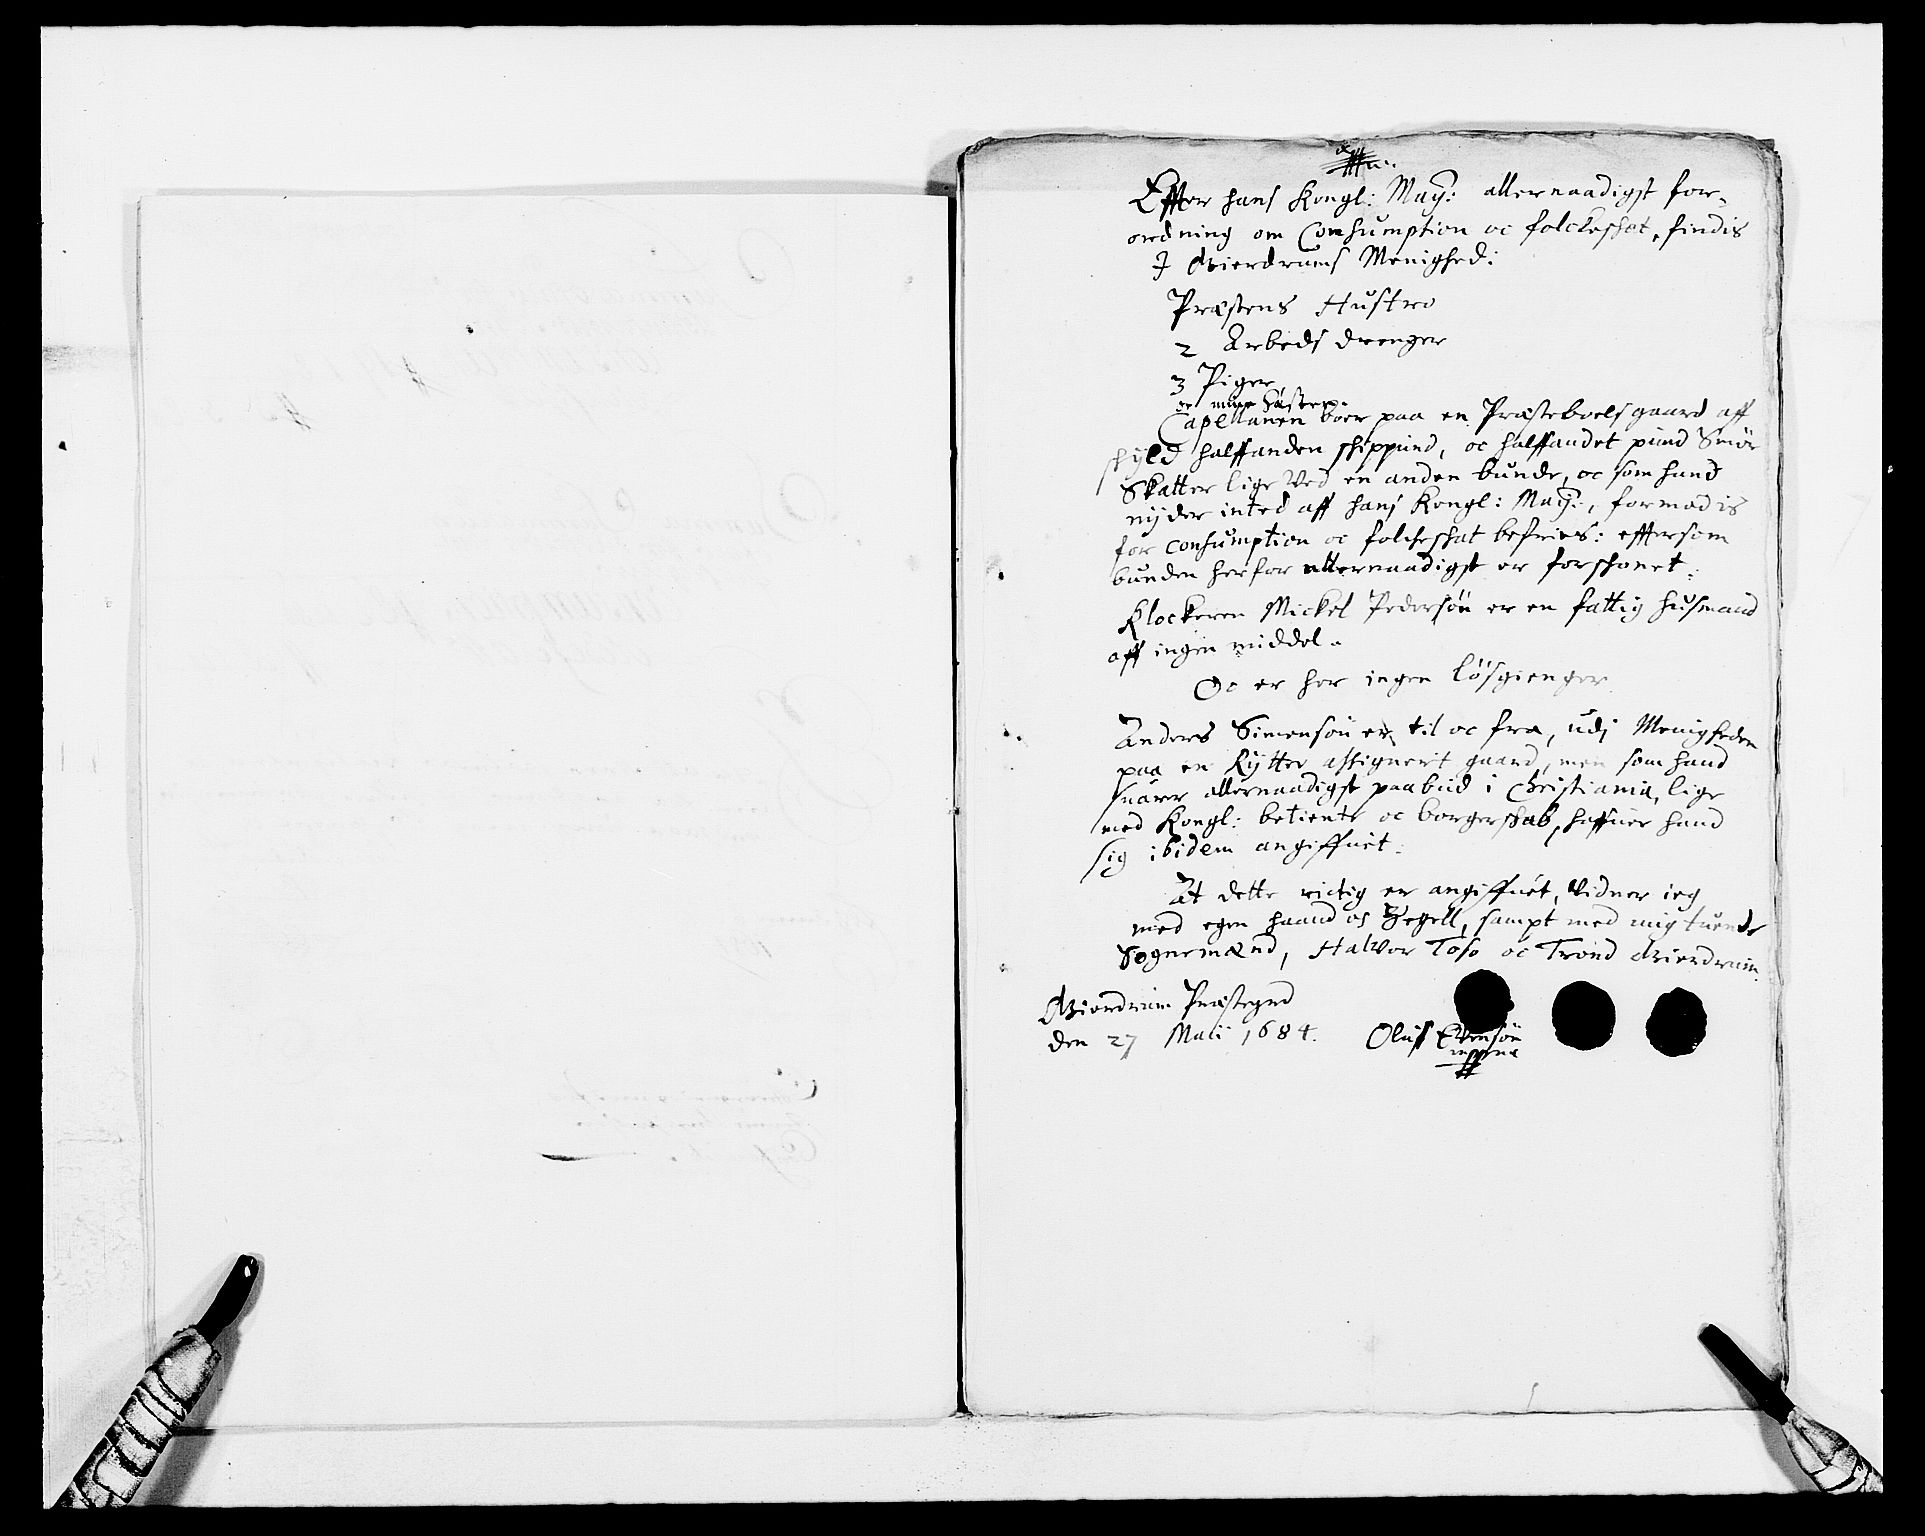 Effter hans Kongl: May: allernaadigst for-
ordning om Consumption oc folckeskat, findis
I Gierdrums Menighed:
Præstens Hustro
2 Arbeds drenger
3 Piger,
oc mine Søster.
Capellanen boer paa en Præsteboels gaard aff
skyld halffanden skippund, oc halffandet pund Smør
Skatter lige Ved en anden bunde, oc som hand
nyder inted aff hans Kongl: May:, formodis
for consumption oc folckeskat befries: efftersom
bunden herfor allernaadigst er forskonet:
Klockeren Mickel Pedersøn er en fattig husmand
aff ingen middel.
Oc er her ingen løsgienger
Anders Simensøn er til oc fra, udi Menigheden
paa en Rytter assignert gaard, men som hand
suarer allernaadigst paabud i Christiania, lige
med Kongl: betiente oc borgerskab, haffuer hand
sig ibidem angiffuet.
At dette rictig er angiffuet, Vidner ieg
med egen haand oc Zegell, sampt med mig tuende
Sognemænd, Halvor Toso oc Trond Gierdrum.
Gierdrum Præstegrd
den 27 Maii 1684. Oluff Evensøn
mppria